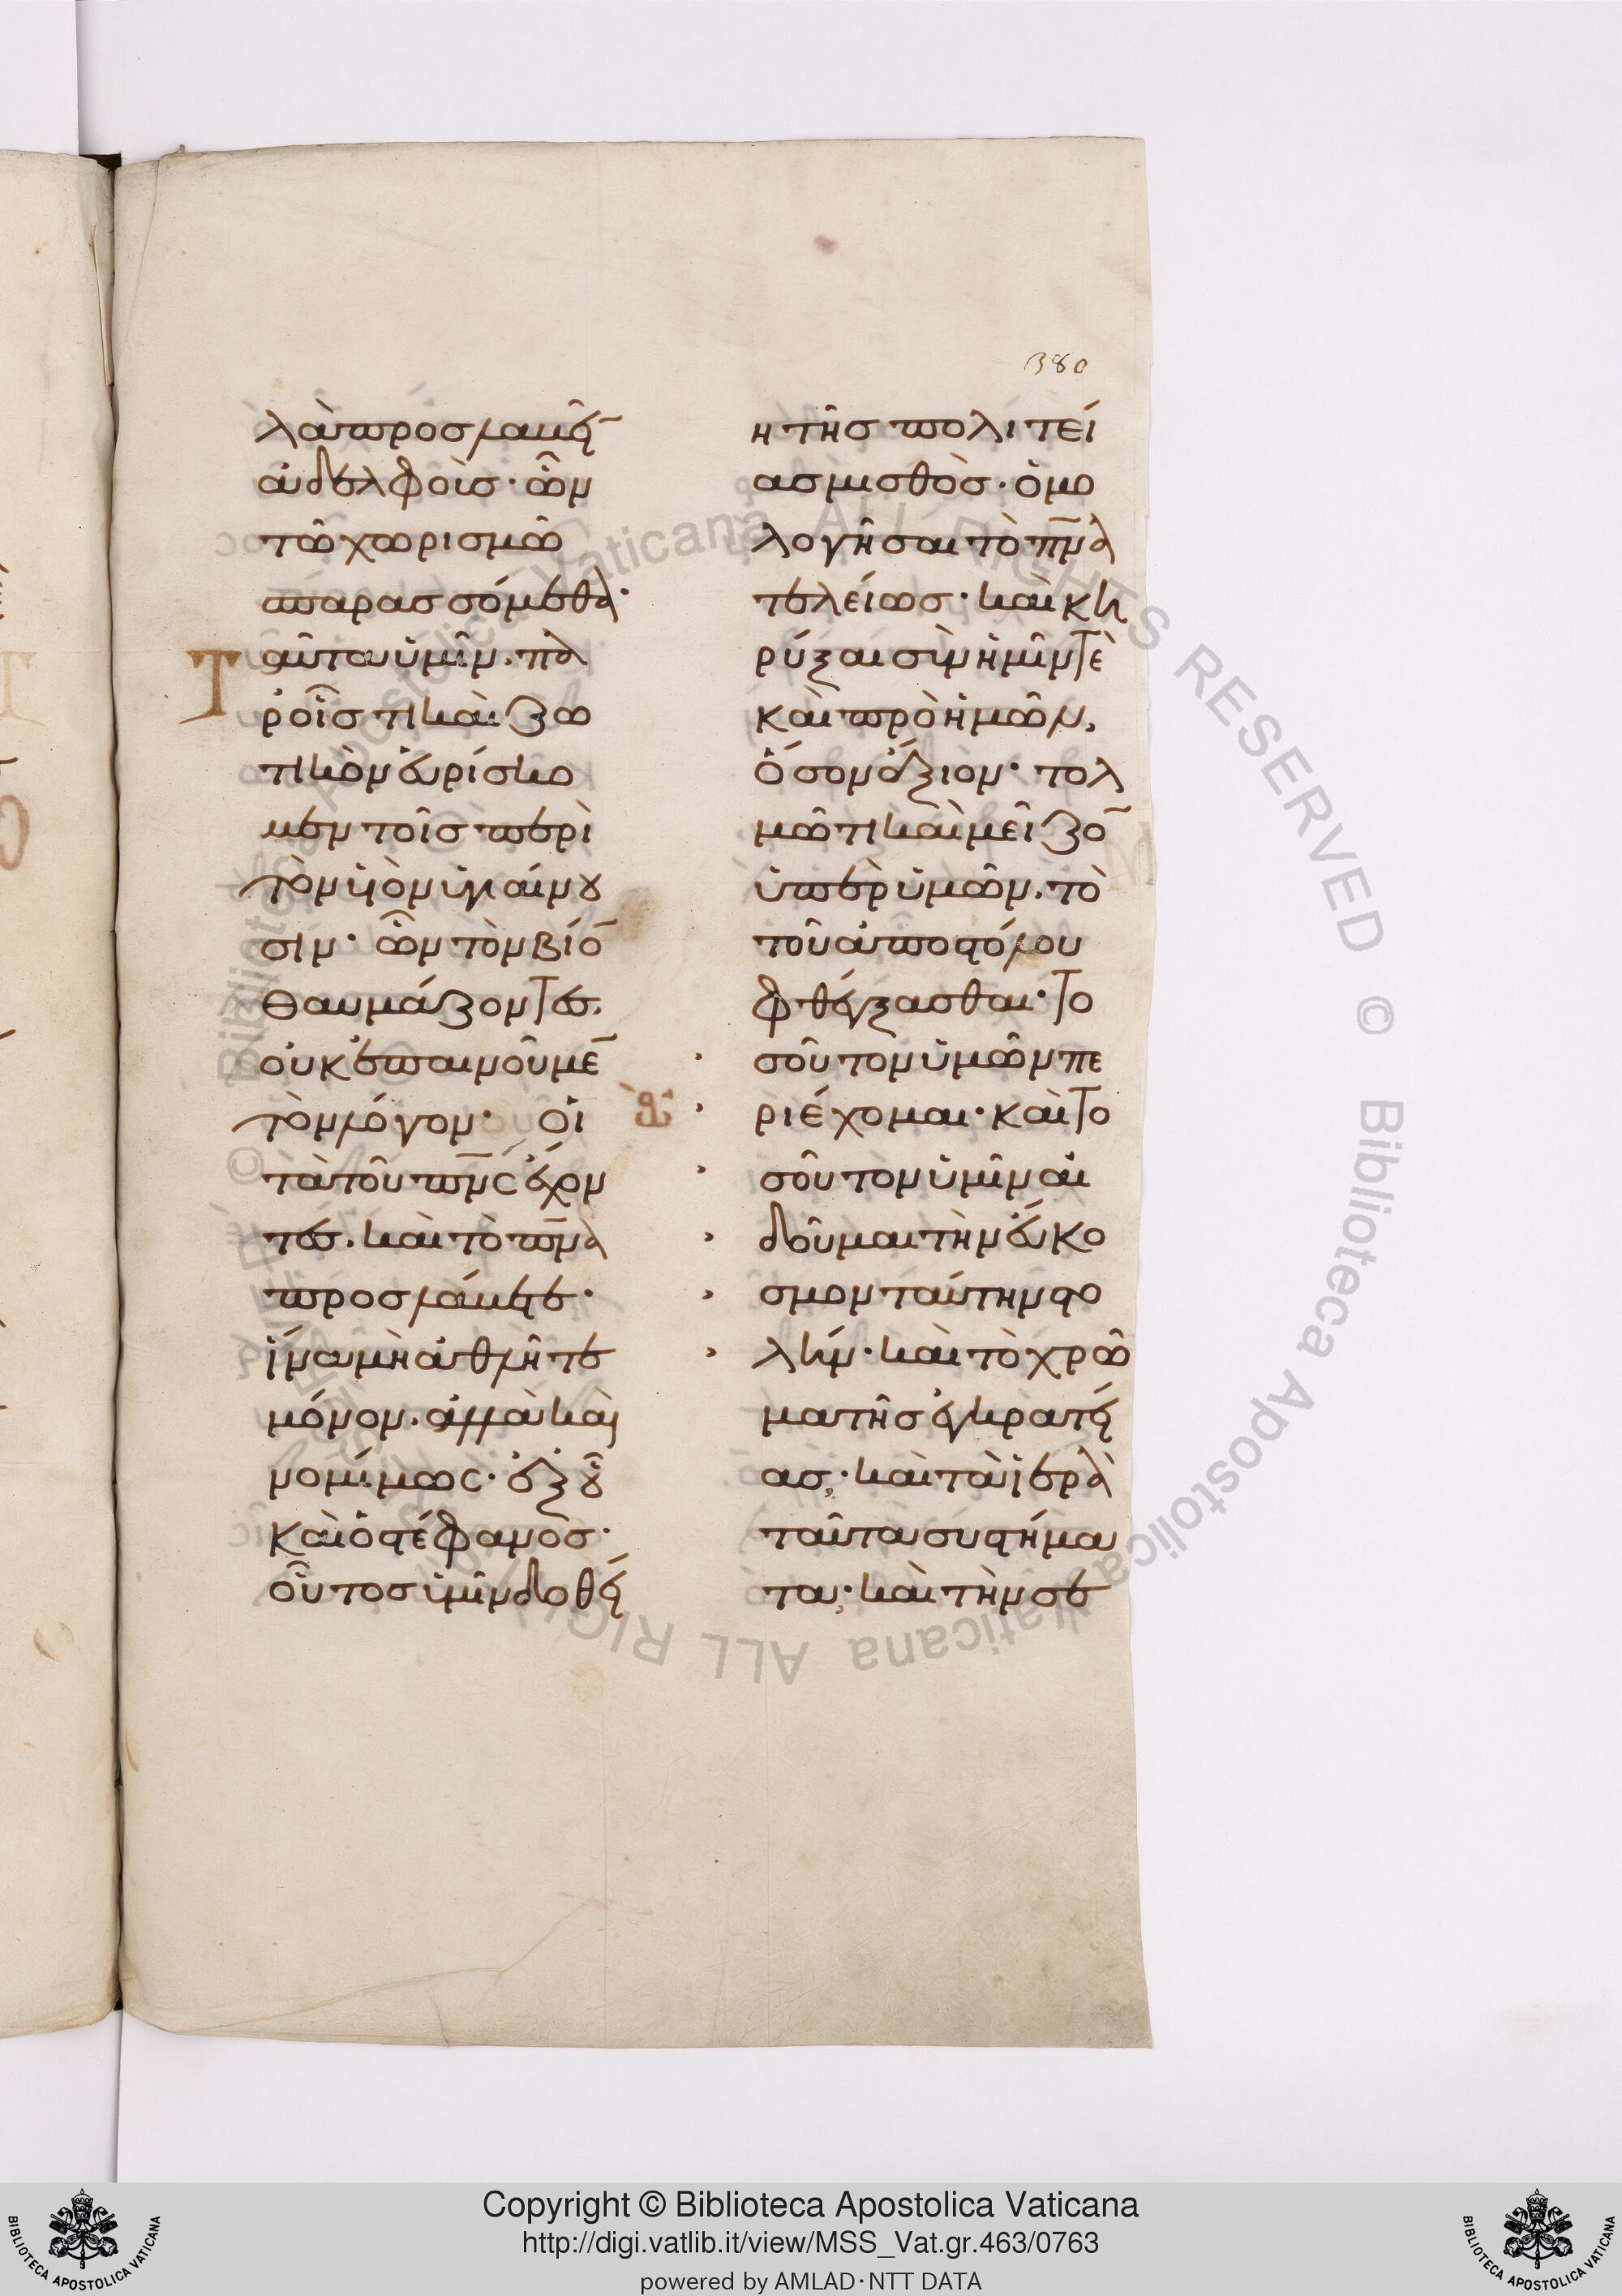 380
λὰ προσλαμβ(ά)
ἀδελφοῖς· ὧν
τῶ χωρισμῶ
σπαρασσόμεθα·
Ταῦτα ὑμῖν. πα
ῥ' οἷς τι καὶ ζω
τικὸν εὑρίσκο
μεν τοῖς περὶ
τὸν υἱὸν ὑγιαίνου
σιν· ὧν τὸν βίο̄
θαυμάζοντες.
οὐκ ἐπαινοῦμε̄
τὸν λόγον· Οἱ
τὰ τοῦ πν̄ς ἔχον
τες. καὶ τὸ πν̄α
προσλάβετε·
ἵνα μὴ ἀθλῆτε
μόνον. ἀλλὰ καὶ
νομίμως· ἐξ οὗ
καὶ ὁ στέφανος·
οὗτος ὑμῖν δοθεί
η τῆς πολιτεί
ας μισθὸς· ὁμο
λογῆσαι τὸ πν̄α
τελείως· καὶ κη
ρύξαι σὺν ἡμῖν τὲ
καὶ πρὸ ἡμῶν,
ὅσον ἄξιον· τολ
μῶ τι καὶ μεῖζο̄
ὑπὲρ ὑμῶν. τὸ
τοῦ ἀποστόλου
φθέγξασθαι· το
σοῦτον ὑμῶν πε
ριέχομαι· καὶ το
σοῦτον ὑμῖν αἰ
δοῦμαι τὴν εὔκο
σμον ταύτην στο
λήν· καὶ τὸ χρῶ
μα τῆς ἐγκρατεί
ας, καὶ τὰ ἱερὰ
ταῦτα συστήμα
τα, καὶ τὴν σε
Copyright © Biblioteca Apostolica Vaticana
http://digi.vatlib.it/view/MSS_Vat.gr.463/0763
powered by AMLAD·NTT DATA
BIBLIOTECA APOSTOLICA VATICANA
BIBLIOTECA APOSTOLICA VATICANA